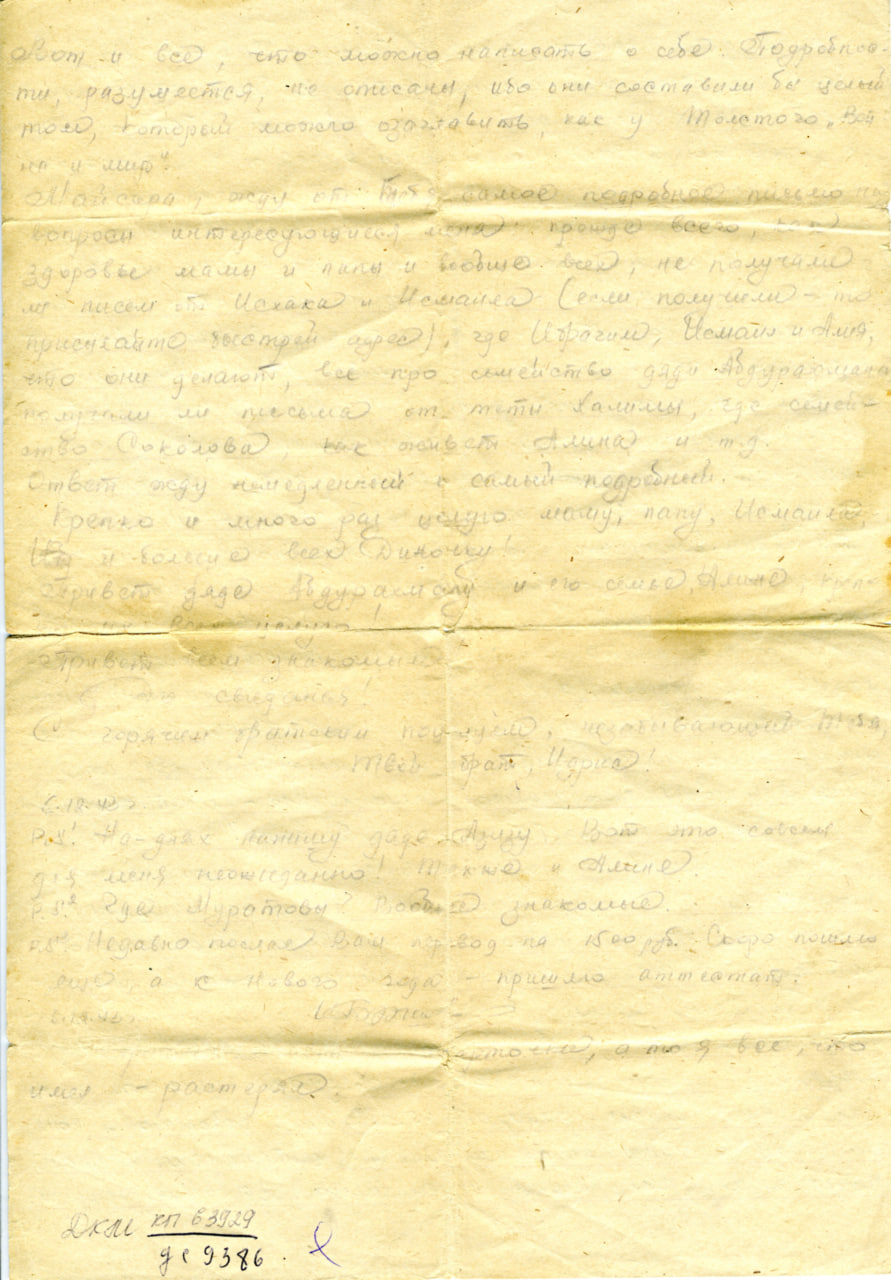 Вот и все, что можно написать о себе. Подробнос-
ти, разумеется, не описаны, ибо они составили бы целый
том, который можно озаглавить, как у Толстого „Вой
на и мир“.
Майсара, жду от Тебя самое подробное письмо на
вопросы интересующиеся меня: прежде всего, как
здоровье мамы и папы и вообще всех, не получали
ли писем от Исхака и Исмаила (если получили – то
присылайте быстрей адрес), где Ибрагим, Исмаил и Алия,
что они делают, все про семейство дяди Абдурахмана
получили ли письма от тети Халимы, где семей-
ство Соколова, как живет Алина и т.д.
Ответ жду немедленный и самый подробный.–
Крепко и много раз целую маму, папу, Исмаила,
и больше всех Диночку!
Привет дяде Абдурахману и его семье, Алине,
их всех целую!
Привет всем знакомым
до свиданья!
С горячим братским поцелуем, незабывающий Тебя,
Твой брат, Идрис!
6.12.42г.
P.S.¹ На-днях напишу дяде Азизу. Вот это совсем
для меня неожиданно! Также и Алине.
P.S.² Где Муратовы? Вообще знакомые.
P.S.³ Недавно послал Вам перевод на 1500 руб. Скоро пошлю
еще, а к Нового года – пришлю аттестат.
6.12.42г.
а то я все, что
имел – растерял.
ДКМ КП 63929
дс 9386.